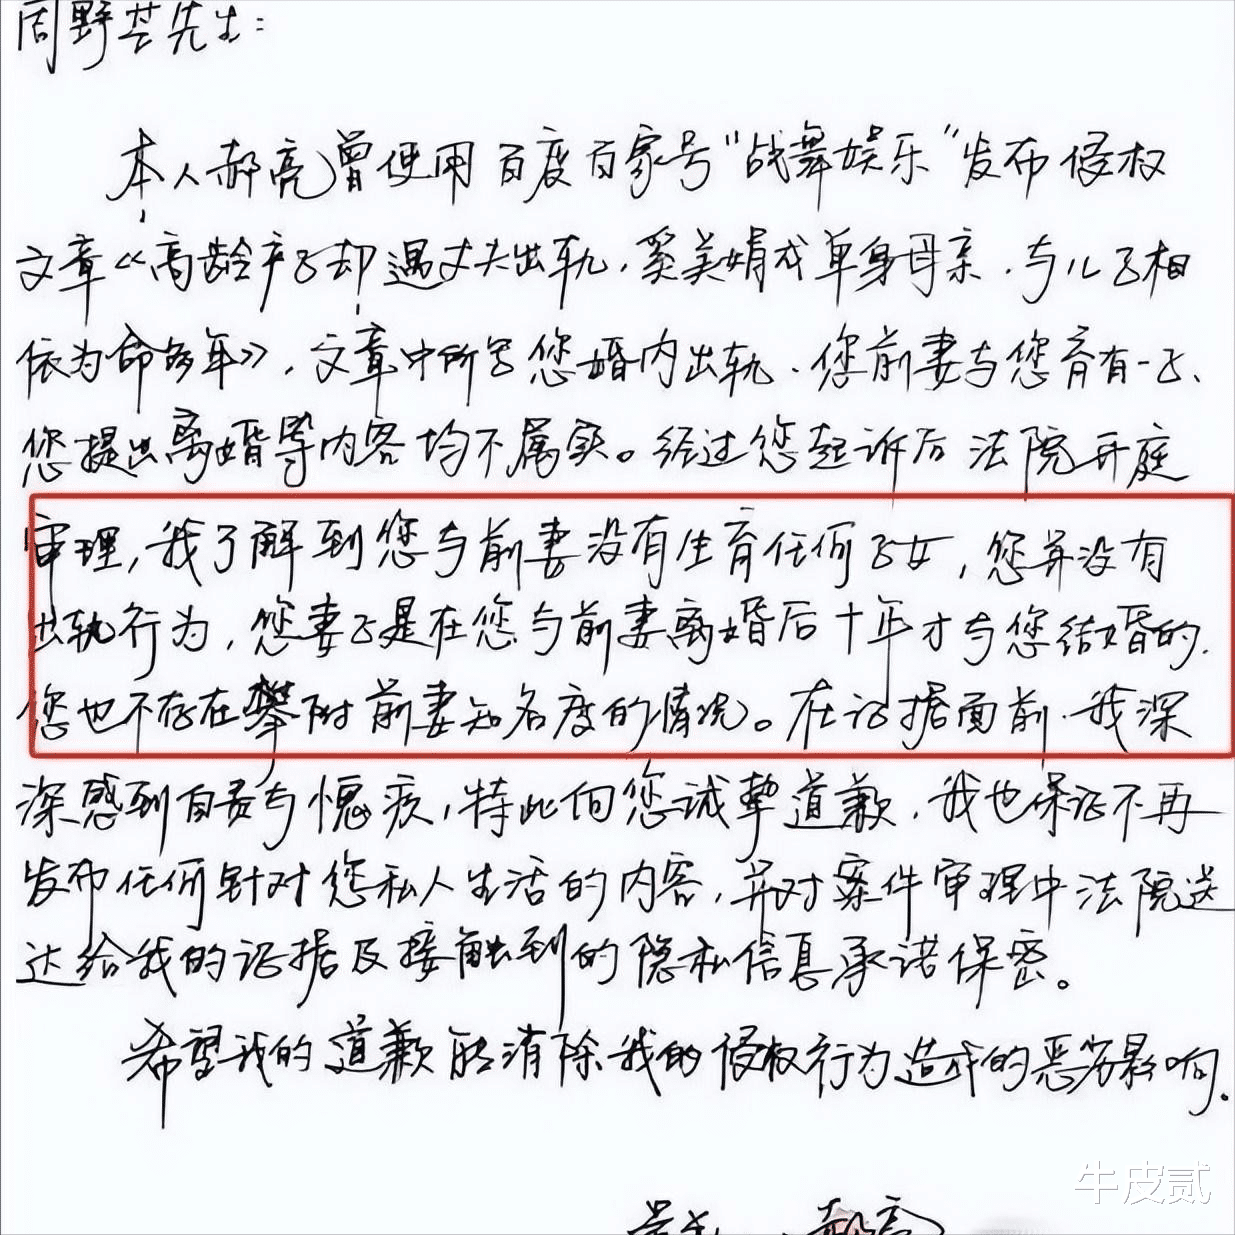 周野芒先生：
本人郝亮曾使用百度百家号"战舞娱乐"发布侵权
文章《高龄产子却遇丈夫出轨，奚美娟成单身母亲，与儿子相
依为命多年》，文章中所写您婚内出轨、您前妻与您育有一子、
您提出离婚等内容均不属实。经过您起诉后法院开庭
审理，我了解到您与前妻没有生育任何子女，您并没有
出轨行为，您妻子是在您与前妻离婚后十年才与您结婚的，
您也不存在攀附前妻知名度的情况。在证据面前，我深
深感到自责与愧疚，特此向您诚挚道歉，我也保证不再
发布任何针对您私人生活的内容，并对案件审理中法院送
达给我的证据及接触到的隐私信息承诺保密。
希望我的道歉能消除我的侵权行为造成的恶劣影响。
郝亮
牛皮贰